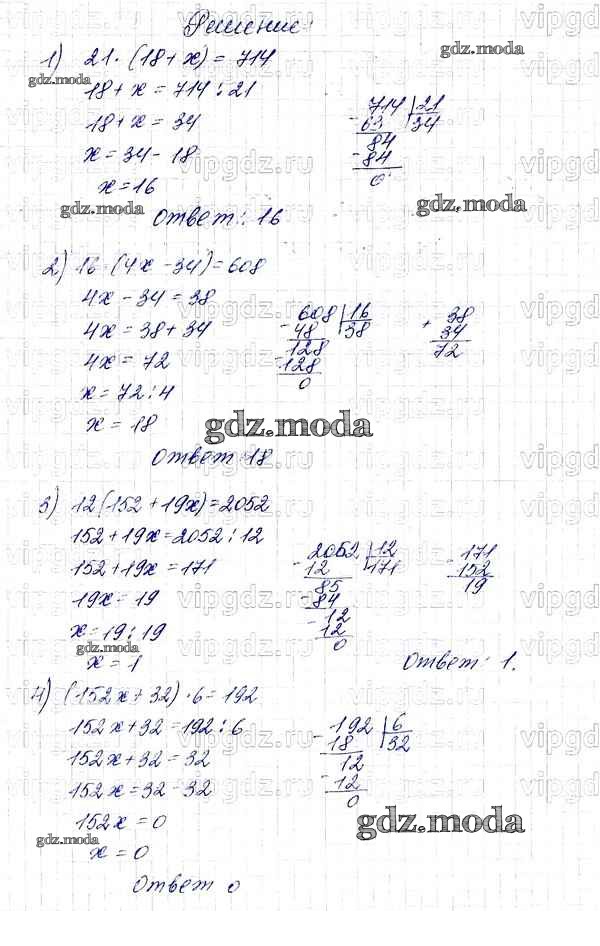 Решение:
1) 21 · (18 + x) = 714
18 + x = 714 : 21
18 + x = 34
x = 34 - 18
x = 16
714 21
- 63 34
84
- 84
0
Ответ: 16
2) 16 · (4x - 34) = 608
4x - 34 = 38
4x = 38 + 34
4x = 72
x = 72 : 4
x = 18
608 16
- 48 38
128
- 128
0
38
+ 34
72
Ответ: 18
3) 12 (152 + 19x) = 2052
152 + 19x = 2052 : 12
152 + 19x = 171
19x = 19
x = 19 : 19
x = 1
2052 12
- 12 171
85
- 84
12
- 12
0
171
- 152
19
Ответ: 1.
4) (152x + 32) · 6 = 192
152x + 32 = 192 : 6
152x + 32 = 32
152x = 32 - 32
152x = 0
x = 0
192 6
- 18 32
12
- 12
0
Ответ 0
gdz.moda
vipgdz.ru